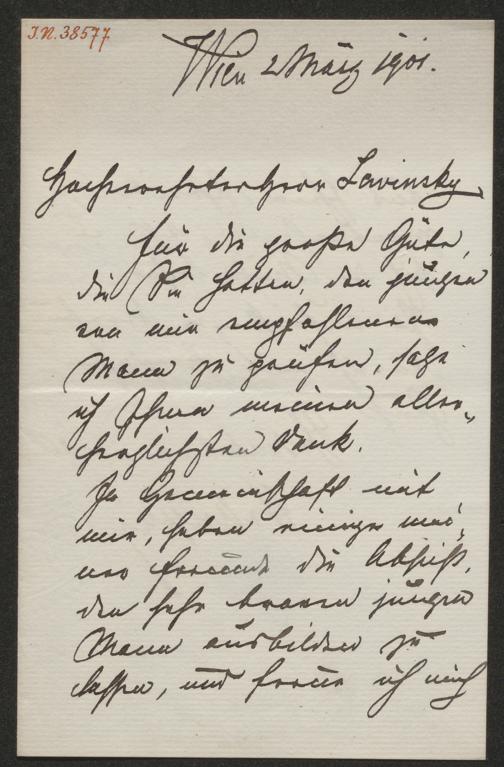 I.N. 38577
Wien 2 März 1901.
Hochverehrter Herr Lewinsky,
Für die große Güte,
die Sie hatten, den jungen
von mir empfohlenen
Mann zu prüfen, sage
ich Ihnen meinen aller-
herzlichsten Dank.
In Gemeinschaft mit
mir, haben einige mei-
ner Freunde die Absicht,
den sehr braven jungen
Mann ausbilden zu
lassen, und freue ich mich